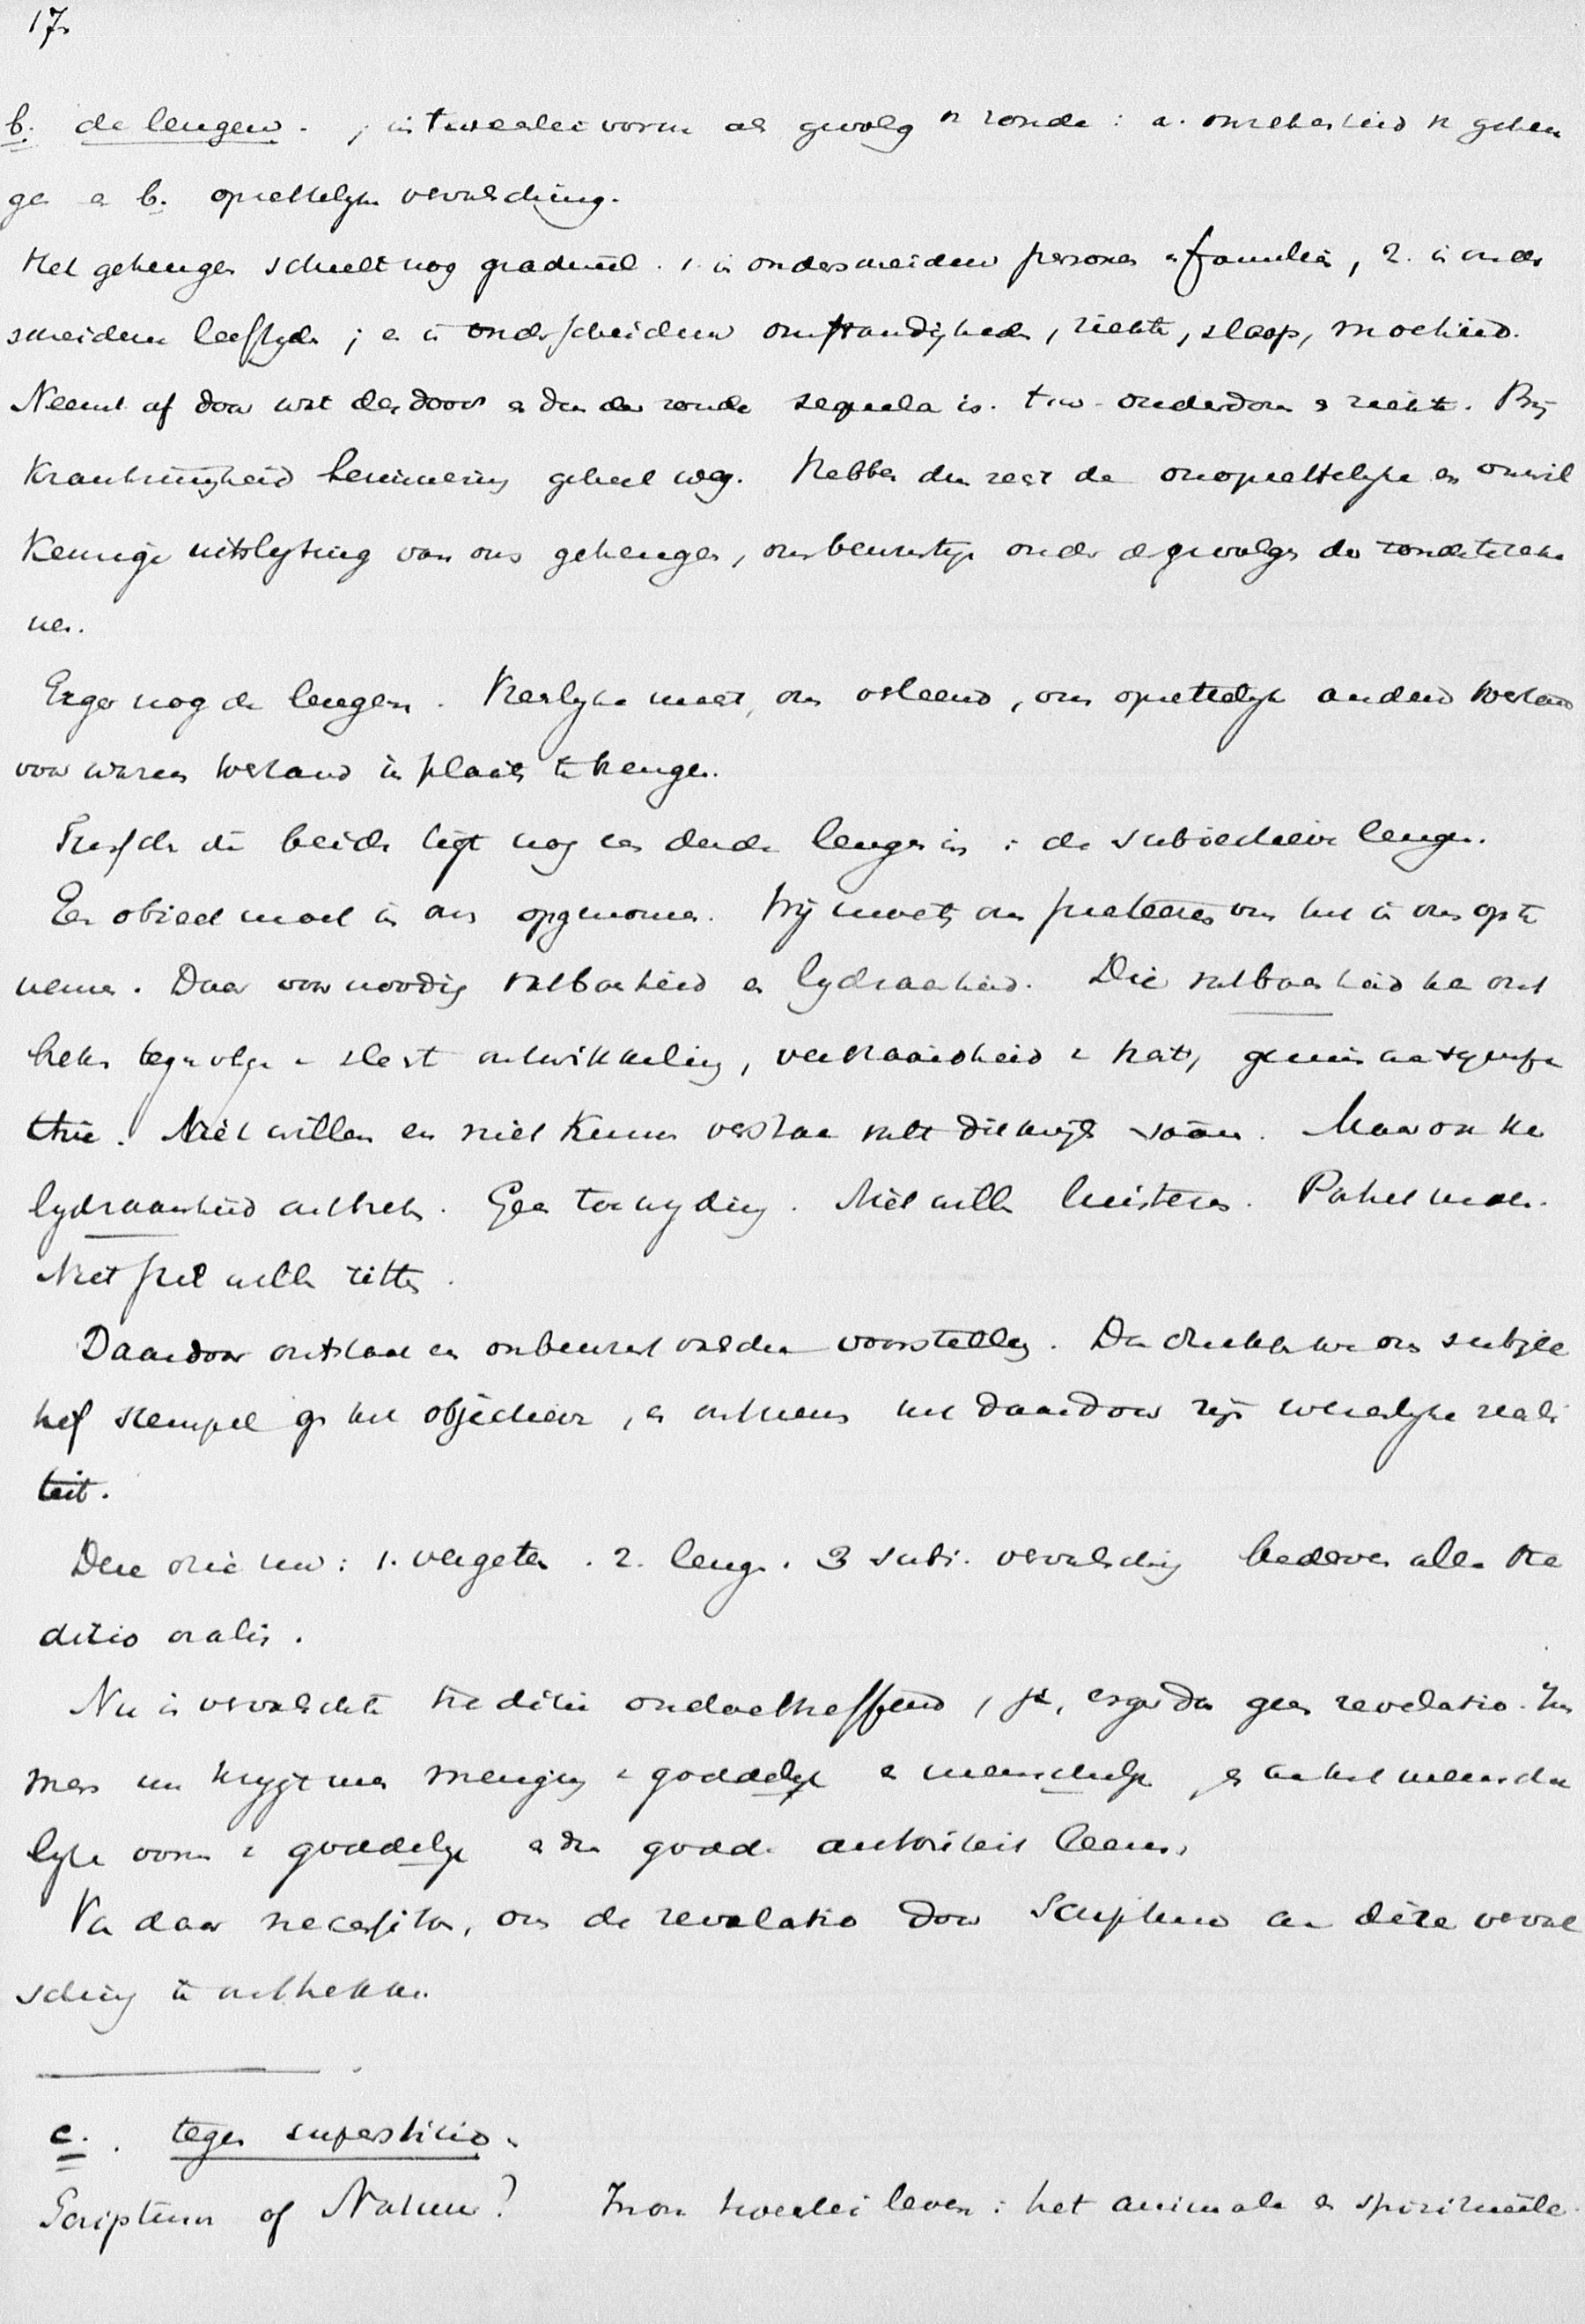 17.
b. de leugen. ; in tweeerlei vorm als gevolg v zonde : a. onzekerheid v geheu
gen en b. opzettelyke vervalsching.
Het geheugen scheelt nog gradueel. 1. in onderscheiden personen en familiën, 2. in onder
scheiden leeftyden ; en in onderscheiden omstandigheden, ziekte, slaap, moeheid.
Neemt af door wat der dood en dus der zonde sequela is. t.w. ouderdom en ziekte. Bij
Krankzinnigheid herinnering geheel weg. Hebben dus zeer de onopzettelyke en onwil
Keurige uitslyting van ons geheugen, onbewustzyn onder de gevolgen der zonde te reke
nen.
Erger nog de leugen. , om opzettelyk anderen toestand
voor waren toestand in plaats te brengen.
Tusschen die beide ligt nog een derde leugen in : de subiectieve leugen.
Een obiect moet in ons opgenomen. Wij moeten ons om het in ons op te
nemen. Daar voor noodig vatbaarheid en lydzaamheid. Die vatbaarheid kan ont
breken tengevolge v slechte ontwikkeling, verdraaidheid v hart, gemis aan sympa
thie. Niet willen en niet Kunnen verstaan valt dikwijls saam. Maar ook kan
lydzaamheid ontbreken. Geen toewyding. Niet willen luisteren.
Niet stil willen zitten.
Daardoor ontstaat een onbewust valsche voorstelling. Dan drukken we ons subjec
tief stempel op het objectieve, en ontnemen het daardoor zijn werkelyke reali
teit.
Deze drie nu : 1. vergeten. 2. leugen. 3 subi. vervalsching bederven alle tra
ditio oralis.
Nu is vervalschte traditie ondoeltreffend, ja, erger dan geen revelatio. Im
mers nu krygt men menging v goddelyk en menschelyk en aan het mensche
lyke vorm v goddelyke en dus godd. autoriteit leenen.
Van daar necessitas, om de revelatio door Scriptuur aan deze verval
sching te onttrekken.
c. tegen superstitio.
Scriptuur of Natuur? In ons tweeerlei leven : het animale en spiritueele.